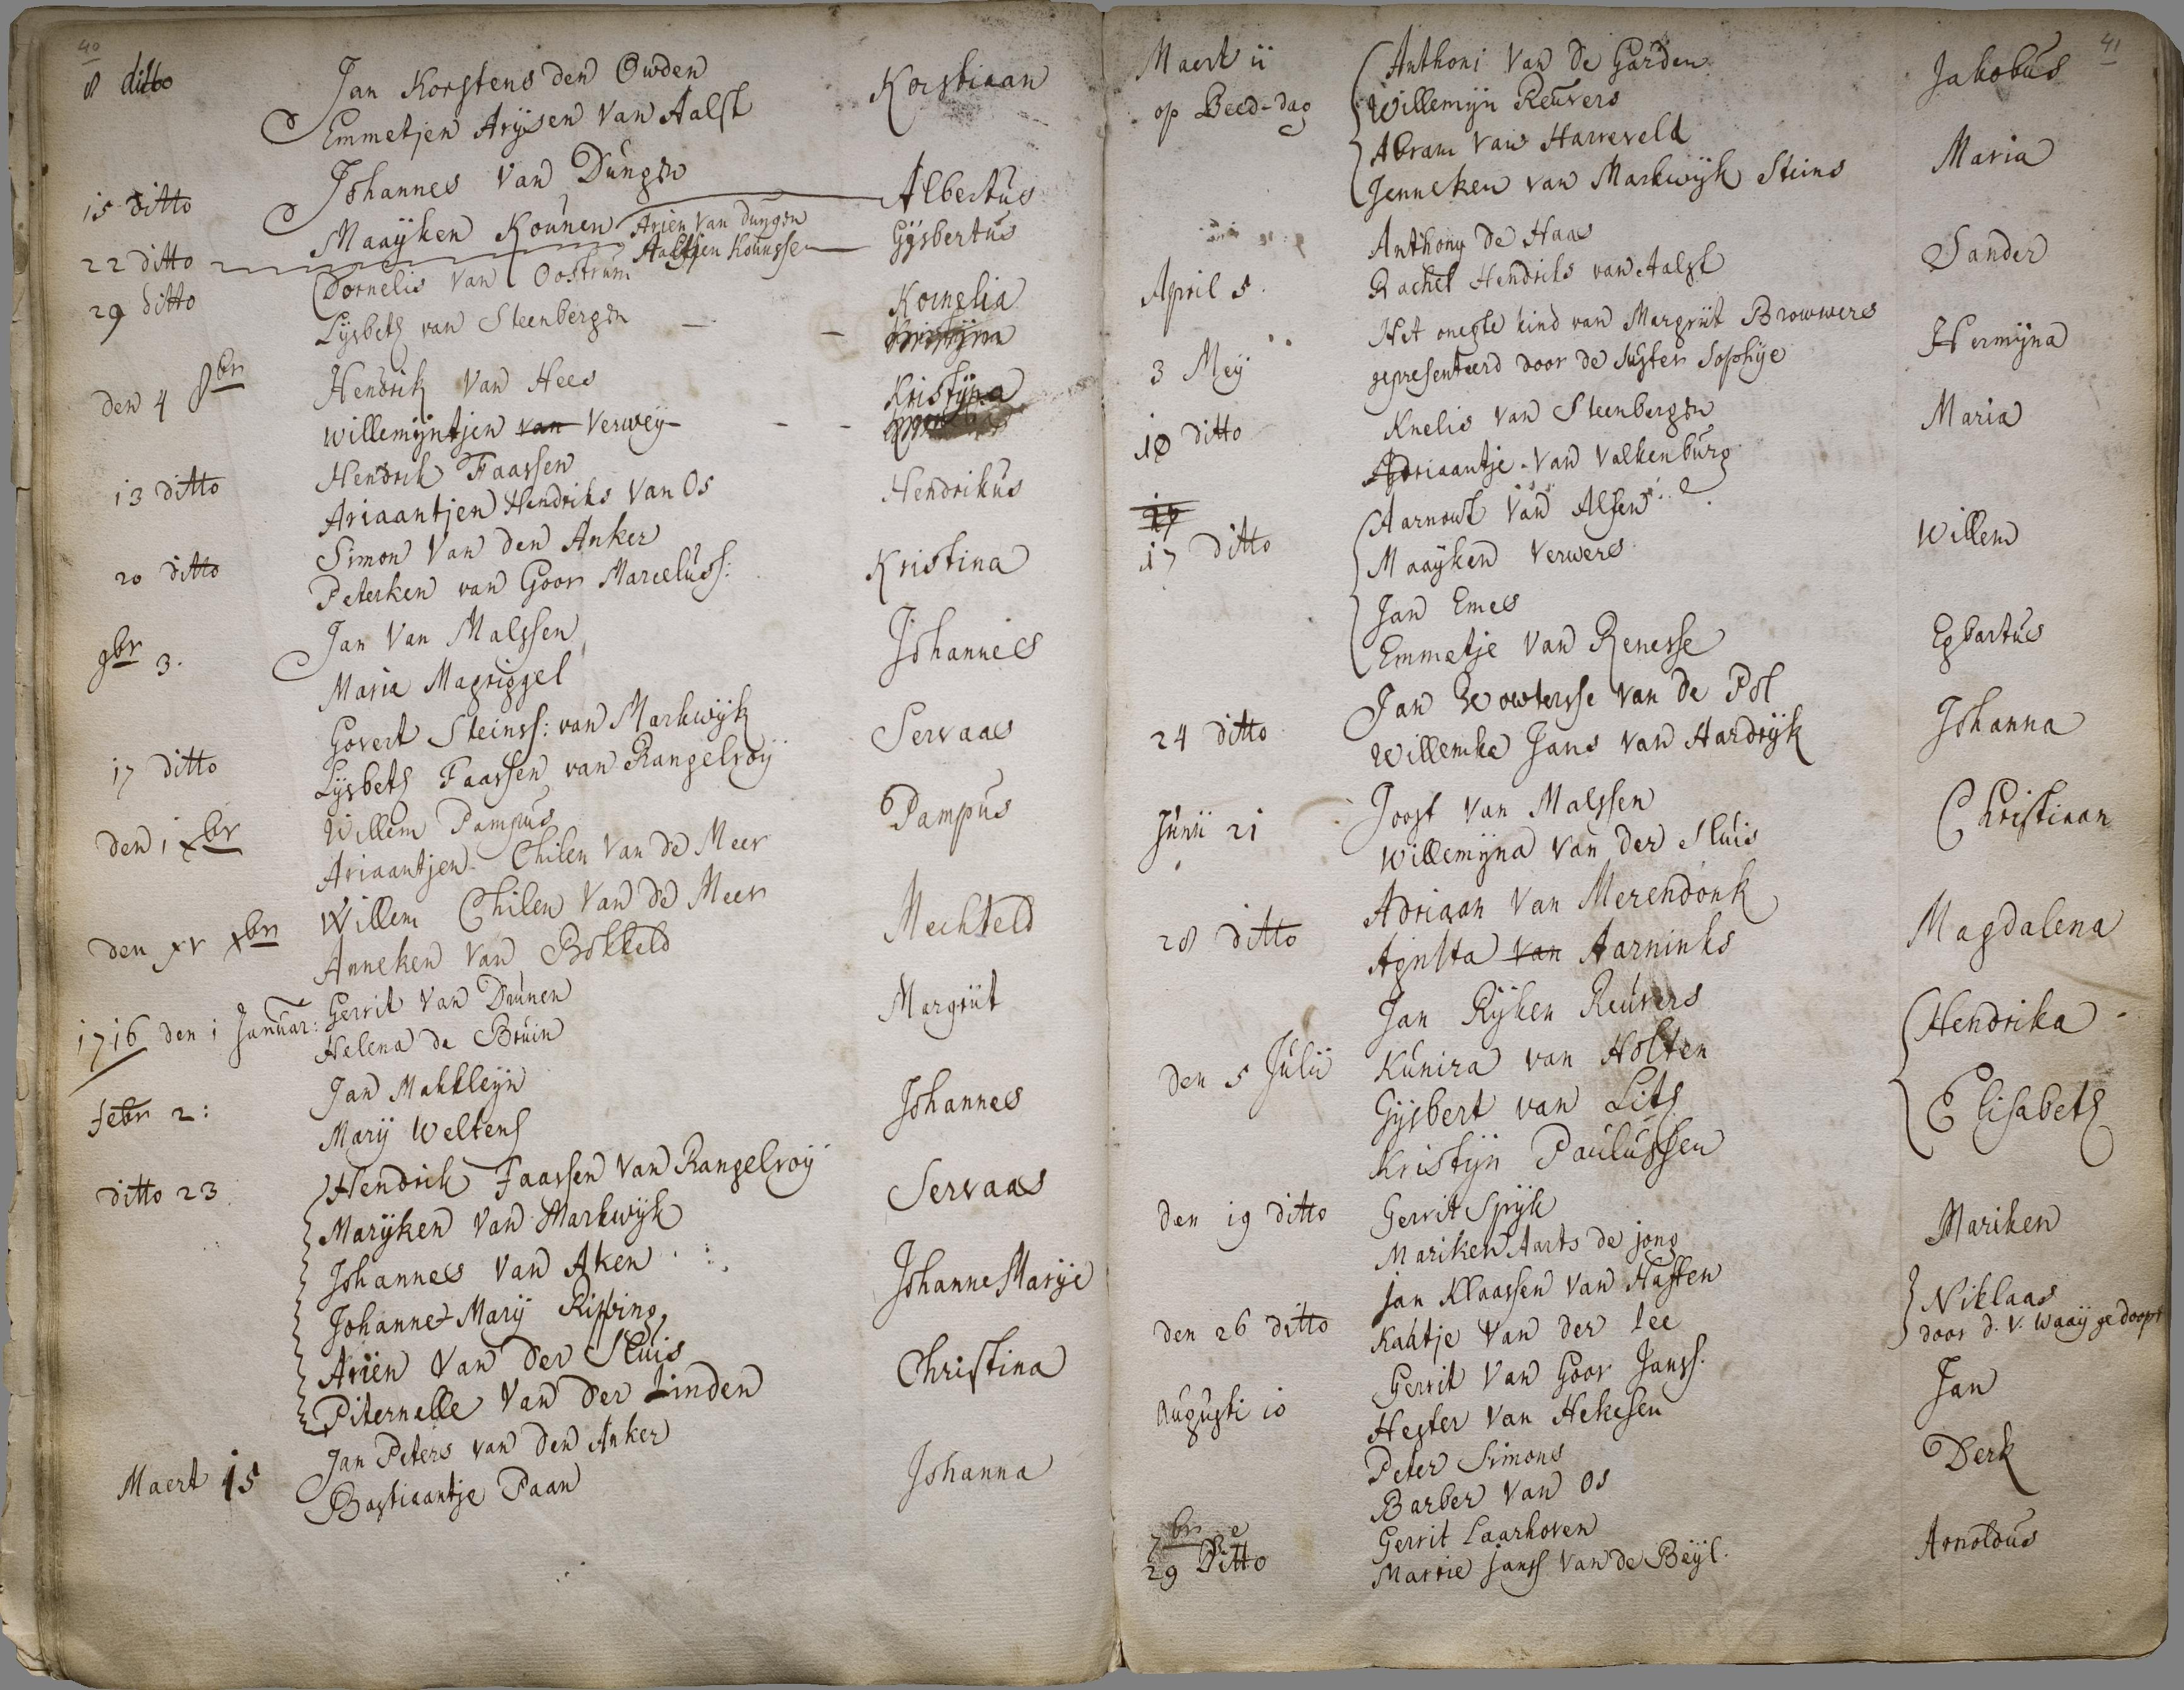 40
8 ditto Jan Korstens den Owden Korstiaan
Emmetjen Arijsen van Aalst
15 ditto Johannes van Dungen Albertus
Maayken Kounen
22 ditto Arien van Dungen Gijsbertus
Aaltjen Kounsse
29 ditto Cornelis van Oostrum Kornelia
Lijsbeth van Steenbergen
den 4 8br Hendrik van Hees Kristijna
Willemijntjen van Verweij
13 ditto Hendrik Faassen Hendrikus
Ariaantjen Hendriks van Os
20 ditto Simon van den Anker Kristina
Peterken van Goor Marcelüss:
9br 3. Jan van Malssen Johannes
Maria Magriggel
17 ditto Govert Steinss: van Markwijk Servaas
Lijsbeth Faassen van Rangelroij
den 1 xbr Willem Pampus Pampus
Ariaantjen Chilen van de Meer
den xv xbr Willem Chilen van de Meer Mechteld
Anneken van Bokkeld
1716 den 1 Januar: Gerrit van Drunen Margriit
Helena de Bruin
Febr 2: Jan Makkleijn Johannes
Marij Weltens
ditto 23 Hendrik Faassen van Rangelroij Servaas
Marijken van Markwijk
Johannes van Aken Johanne Marije
Johanne Marij Ripping
Arien van der Sluis Christina
Piternelle van der Linden
Maert 15 Jan Peters van den Anker Johanna
Bastiaantje Paan
41
Maert ii Anthoni van de Garden Jakobus
op Beed-dag Willemijn Reuvers
Abram van Harreveld Maria
Jenneken van Markwijk Steins
April 5. Anthony de Haas Sander
Rachel Hendriks van Aalst
3 Meij Het onegte kind van Margriit Browwers Hermijna
gepresenteerd door de suster Sophije
10 ditto Knelis van Steenbergen Maria
Adriaantje van Valkenburg
17 ditto Aarnout van Alsen Willem
Maayken Verwers
Jan Emes Egbartus
Emmetje van Renesse
24 ditto Jan Wowtersse van de Pol Johanna
Willemke Jans van Hardrijk
Junii 21 Joost van Malssen Christiaan
Willemijna van der Sluis
28 ditto Adriaan van Merendonk Magdalena
Agnita van Aarninks
den 5 Julii Jan Rijken Reuvers Hendrika
Kunira van Holten
Gijsbert van Lith Elisabeth
Kristijn Paulussen
den 19 ditto Gerrit Sprijk Mariken
Mariken Aarts de jong
den 26 ditto Jan Klaassen van Haften Niklaas
Kaatje van der Lee door d. v. Waaij gedoopt
Augusti 10 Gerrit van Goor Janss: Jan
Hester van Hekesen
Peter Simons Derk
Barber van Os
7br
29 ditto Gerrit Laarhoven Arnoldus
Marrie Janss van de Beijl.